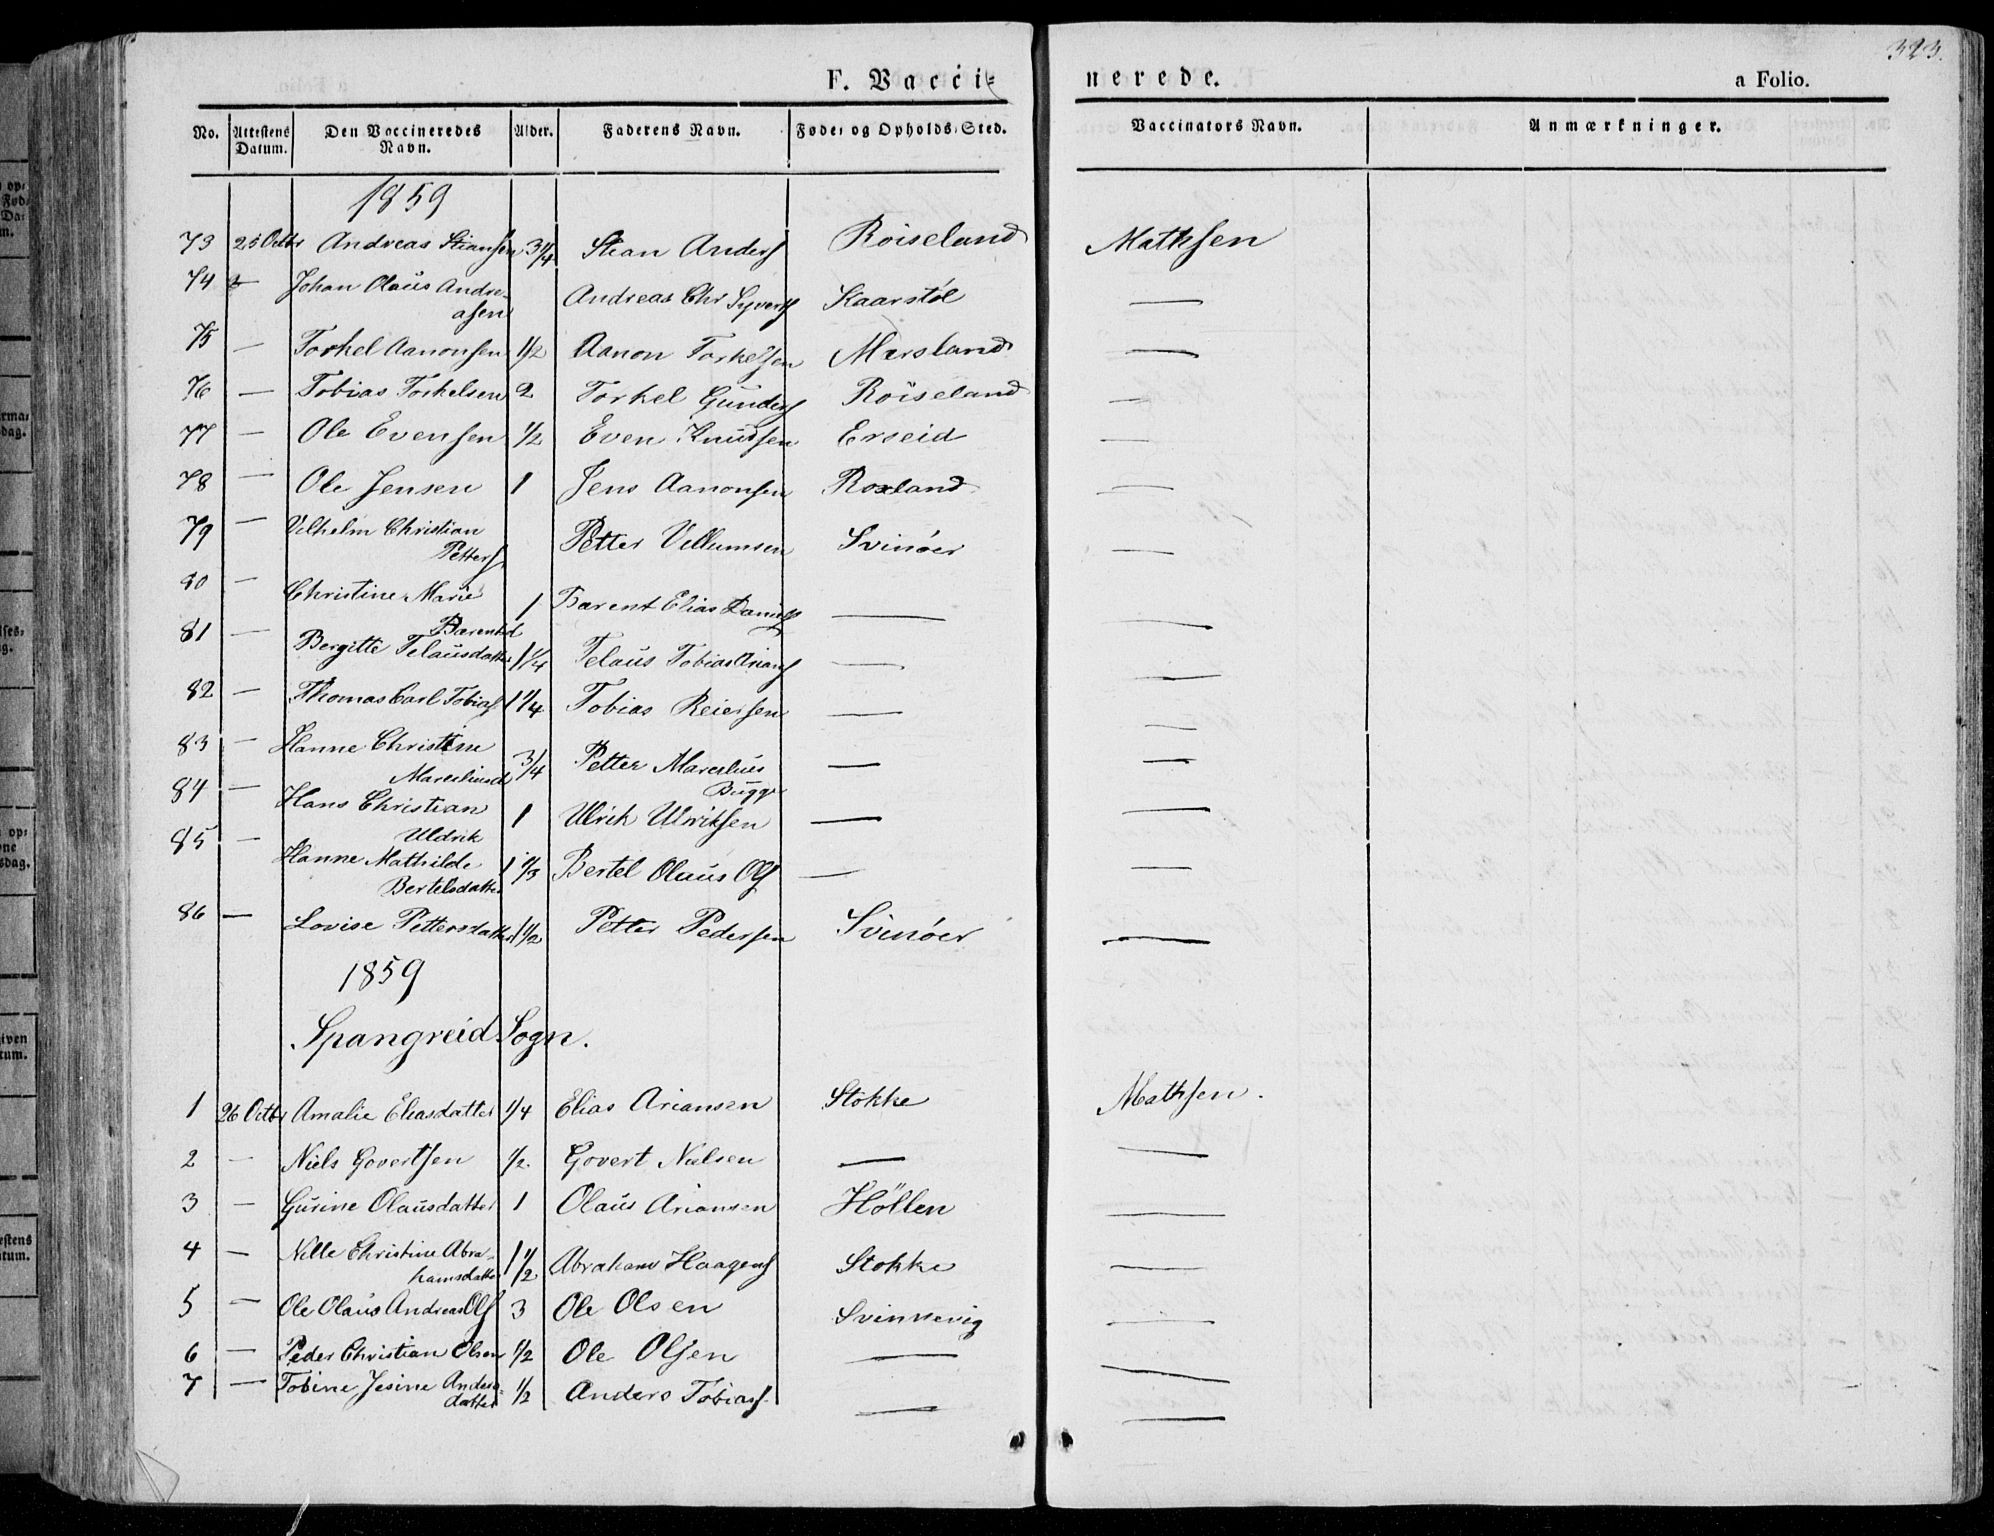 323.
F. Vacci-
nerede.
a Folio.
No. Attestens Datum. Den Vaccineredes Navn. Alder. Faderens Navn. Føde- og Opholds-Sted. Vaccinators Navn. Anmærkninger.
1859
73 25 Octbr Andreas Stiansen 3/4 Stian Anders Röiseland Mathsen
74 — Johan Olaus Andre-
asen Andreas Chr Syverts Kaarstöl —
75 — Torkel Aanonsen 1/2 Aanon Torkelsen Mersland —
76 — Tobias Torkelsen 2 Torkel Gunders Röiseland —
77 — Ole Evensen 1/2 Even Knudsen Erseid —
78 — Ole Jensen 1 Jens Aanonsen Roxland —
79 — Vilhelm Christian
Petters Petter Vellumsen Svinöer —
80 — Christine Marie
Barentsd 1 Barent Elias Daniels — —
81 — Bergitte Telausdatter 1 1/4 Telaus Tobias Arians — —
82 — Thomas Carl Tobias 1 1/4 Tobias Reiersen — —
83 — Hanne Christine
Marceliusd 3/4 Petter Marcelius
Bugge — —
84 — Hans Christian
Uldrik 1 Ulrik Ulriksen — —
85 — Hanne Mathilde
Bertelsdatter 1 Bertel Olaus Ols — —
86 — Lovise Pettersdatter 1 1/2 Petter Pedersen Svinöer —
1859
Spangreid Sogn.
1 26 Octbr Amalie Eliasdatter 1/4 Elias Ariansen Stokke Mathsen.
2 — Niels Govertsen 1/2. Govert Nielsen — —
3 — Gurine Olausdatter 1 Olaus Ariansen Höllen —
4 — Nille Christine Abra-
hamsdatter 1 1/2 Abraham Haagens Stokke —
5 — Ole Olaus Andreas Ols 3 Ole Olsen Svinnevig —
6 — Peder Christian Olsen 1/2 Ole Olsen — —
7 — Tobine Jesine Anders-
datter 1/2 Anders Tobias — —